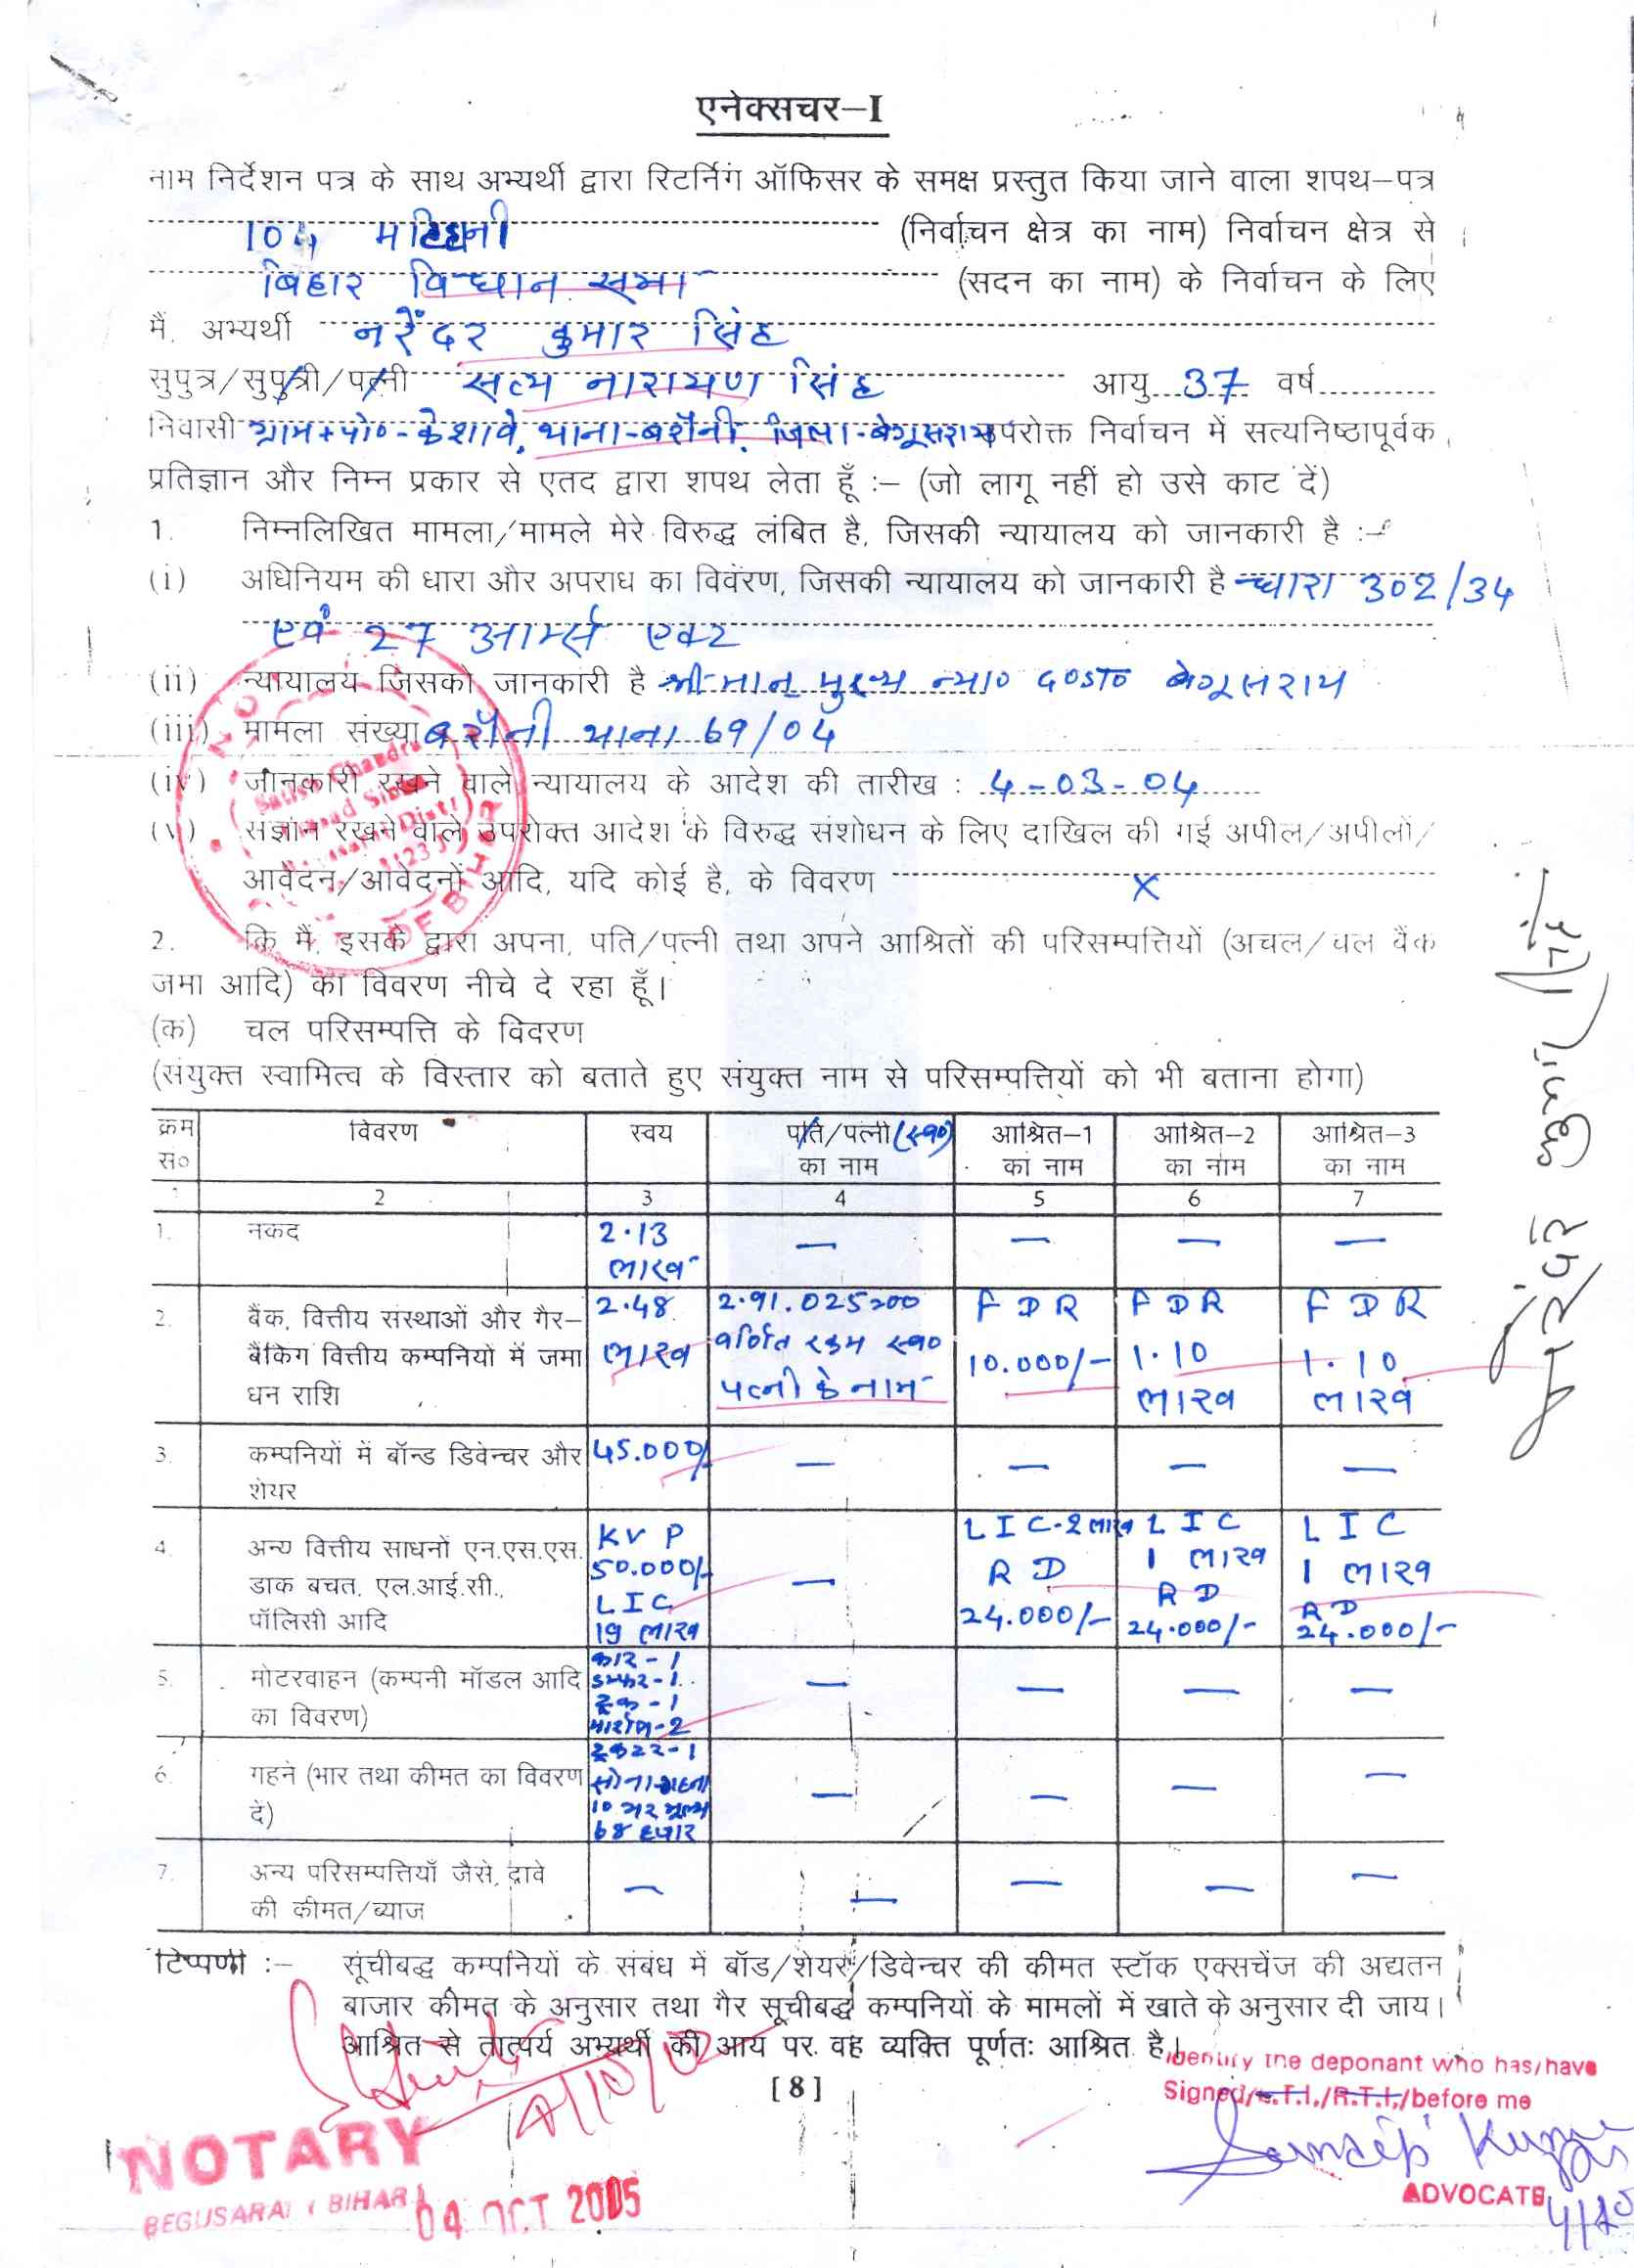 एनेक्सचर–I
नाम निर्देशन पत्र के साथ अभ्यर्थी द्वारा रिटर्निंग ऑफिसर के समक्ष प्रस्तुत किया जाने वाला शपथ–पत्र
104 मटिहानी (निर्वाचन क्षेत्र का नाम) निर्वाचन क्षेत्र से
बिहार विधान सभा (सदन का नाम) के निर्वाचन के लिए
मैं, अभ्यर्थी नरेंदर कुमार सिंह
सुपुत्र/सुपुत्री/पत्नी सत्य नारायण सिंह आयु 37 वर्ष
निवासी ग्राम+पो०-केशावे, थाना-बरौनी, जिला-बेगूसराय उपरोक्त निर्वाचन में सत्यनिष्ठापूर्वक,
प्रतिज्ञान और निम्न प्रकार से एतद द्वारा शपथ लेता हूँ :– (जो लागू नहीं हो उसे काट दें)
1. निम्नलिखित मामला/मामले मेरे विरुद्ध लंबित है, जिसकी न्यायालय को जानकारी है :–
(i) अधिनियम की धारा और अपराध का विवरण, जिसकी न्यायालय को जानकारी है धारा 302/34
एवं 27 आर्म्स एक्ट
(ii) न्यायालय जिसको जानकारी है श्रीमान मुख्य न्या० बेगूसराय
(iii) मामला संख्या बरौनी थाना 69/04
(iv) जानकारी रखने वाले न्यायालय के आदेश की तारीख : 4-03-04
(v) संज्ञान रखने वाले उपरोक्त आदेश के विरुद्ध संशोधन के लिए दाखिल की गई अपील/अपीलों/
आवेदन/आवेदनों आदि, यदि कोई है, के विवरण X
2. कि मैं, इसके द्वारा अपना, पति/पत्नी तथा अपने आश्रितों की परिसम्पत्तियों (अचल/चल बैंक
जमा आदि) का विवरण नीचे दे रहा हूँ।
(क) चल परिसम्पत्ति के विवरण
(संयुक्त स्वामित्व के विस्तार को बताते हुए संयुक्त नाम से परिसम्पत्तियों को भी बताना होगा)
क्रम सं० विवरण स्वयं पति/पत्नी (स्व०) का नाम आश्रित–1 का नाम आश्रित–2 का नाम आश्रित–3 का नाम
1 2 3 4 5 6 7
1. नकद 2.13 लाख — — — —
2. बैंक, वित्तीय संस्थाओं और गैर– 2.48 2.91.025=00 FDR FDR FDR
बैंकिंग वित्तीय कम्पनियों में जमा लाख वर्णित रकम स्व० 10.000/– 1.10 1.10
धन राशि पत्नी के नाम लाख लाख
3. कम्पनियों में बॉन्ड डिवेन्चर और 45.000/ — — — —
शेयर
4. अन्य वित्तीय साधनों एन.एस.एस. KVP 50.000/- — LIC-2 लाख LIC 1 लाख LIC 1 लाख
डाक बचत, एल.आई.सी., LIC RD RD RD
पॉलिसी आदि 19 लाख 24.000/– 24.000/– 24.000/–
5. मोटरवाहन (कम्पनी मॉडल आदि कार-1 — — — —
का विवरण) डम्फर-1 ट्रक-1
ट्रैक्टर-1
6. गहने (भार तथा कीमत का विवरण सोना गहना — — — —
दें) 10 भर मूल्य
68 हजार
7. अन्य परिसम्पत्तियाँ जैसे, दावे — — — — —
की कीमत/ब्याज
टिप्पणी :– सूचीबद्ध कम्पनियों के संबंध में बॉड/शेयर/डिवेन्चर की कीमत स्टॉक एक्सचेंज की अद्यतन
बाजार कीमत के अनुसार तथा गैर सूचीबद्ध कम्पनियों के मामलों में खाते के अनुसार दी जाय।
आश्रित से तात्पर्य अभ्यर्थी की आय पर वह व्यक्ति पूर्णतः आश्रित है।
[8]
Identify the deponant who has/have
Signed/L.T.I./R.T.I./before me
Sandip Kumar
ADVOCATE
NOTARY
BEGUSARAI (BIHAR)
04 OCT 2005
नरेंदर कुमार सिंह